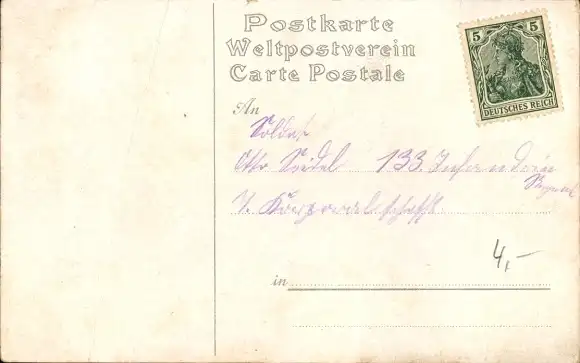 Postkarte
Weltpostverein
Carte Postale
5 5
DEUTSCHES REICH
An
Soldat
Otto Seidel 133. Infanterie
Regiment
7. Korporalschaft
4,-
in